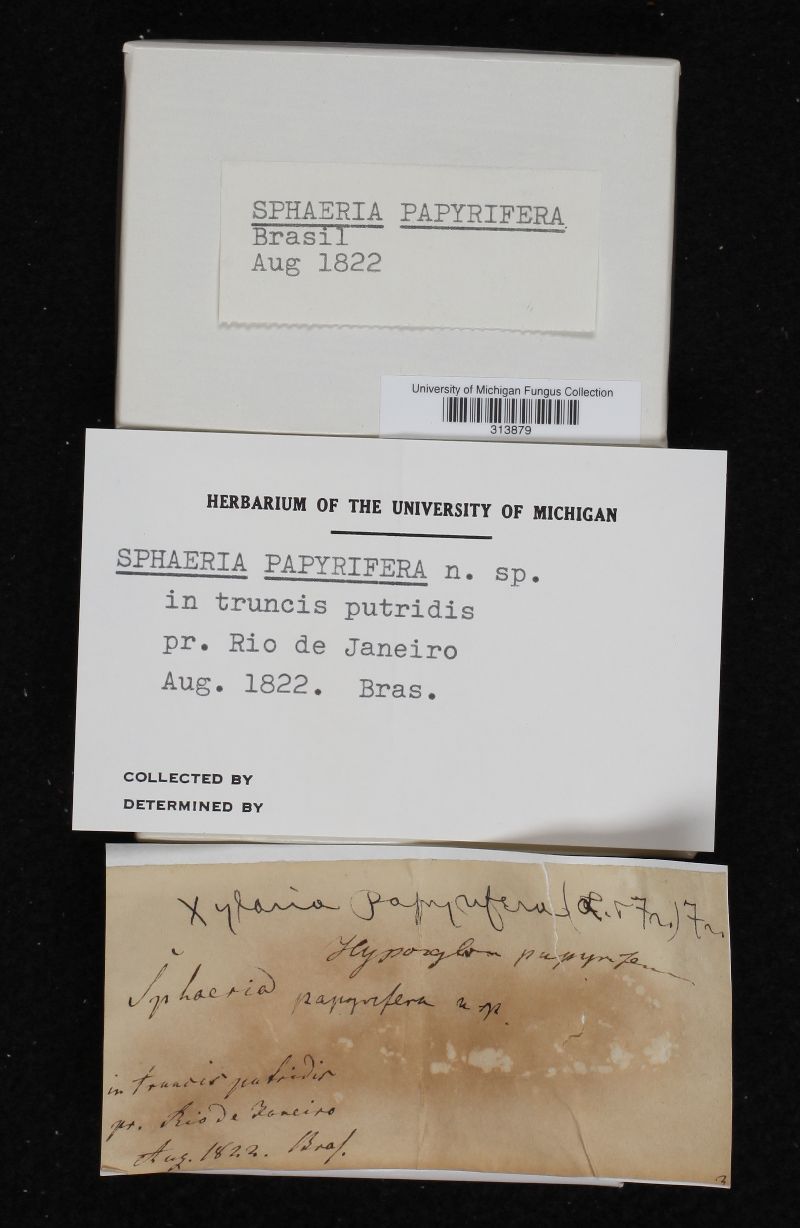 SPHAERIA PAPYRIFERA
Brasil
Aug 1822
University of Michigan Fungus Collection
313879
HERBARIUM OF THE UNIVERSITY OF MICHIGAN
SPHAERIA PAPYRIFERA n. sp.
in truncis putridis
pr. Rio de Janeiro
Aug. 1822. Bras.
COLLECTED BY
DETERMINED BY
Xylaria papyrifera (Fr.) Fr.
Hypoxylon papyrifera
Sphaeria papyrifera n sp.
in truncis putridis
pr. Rio de Janeiro
Aug. 1822. Bras.